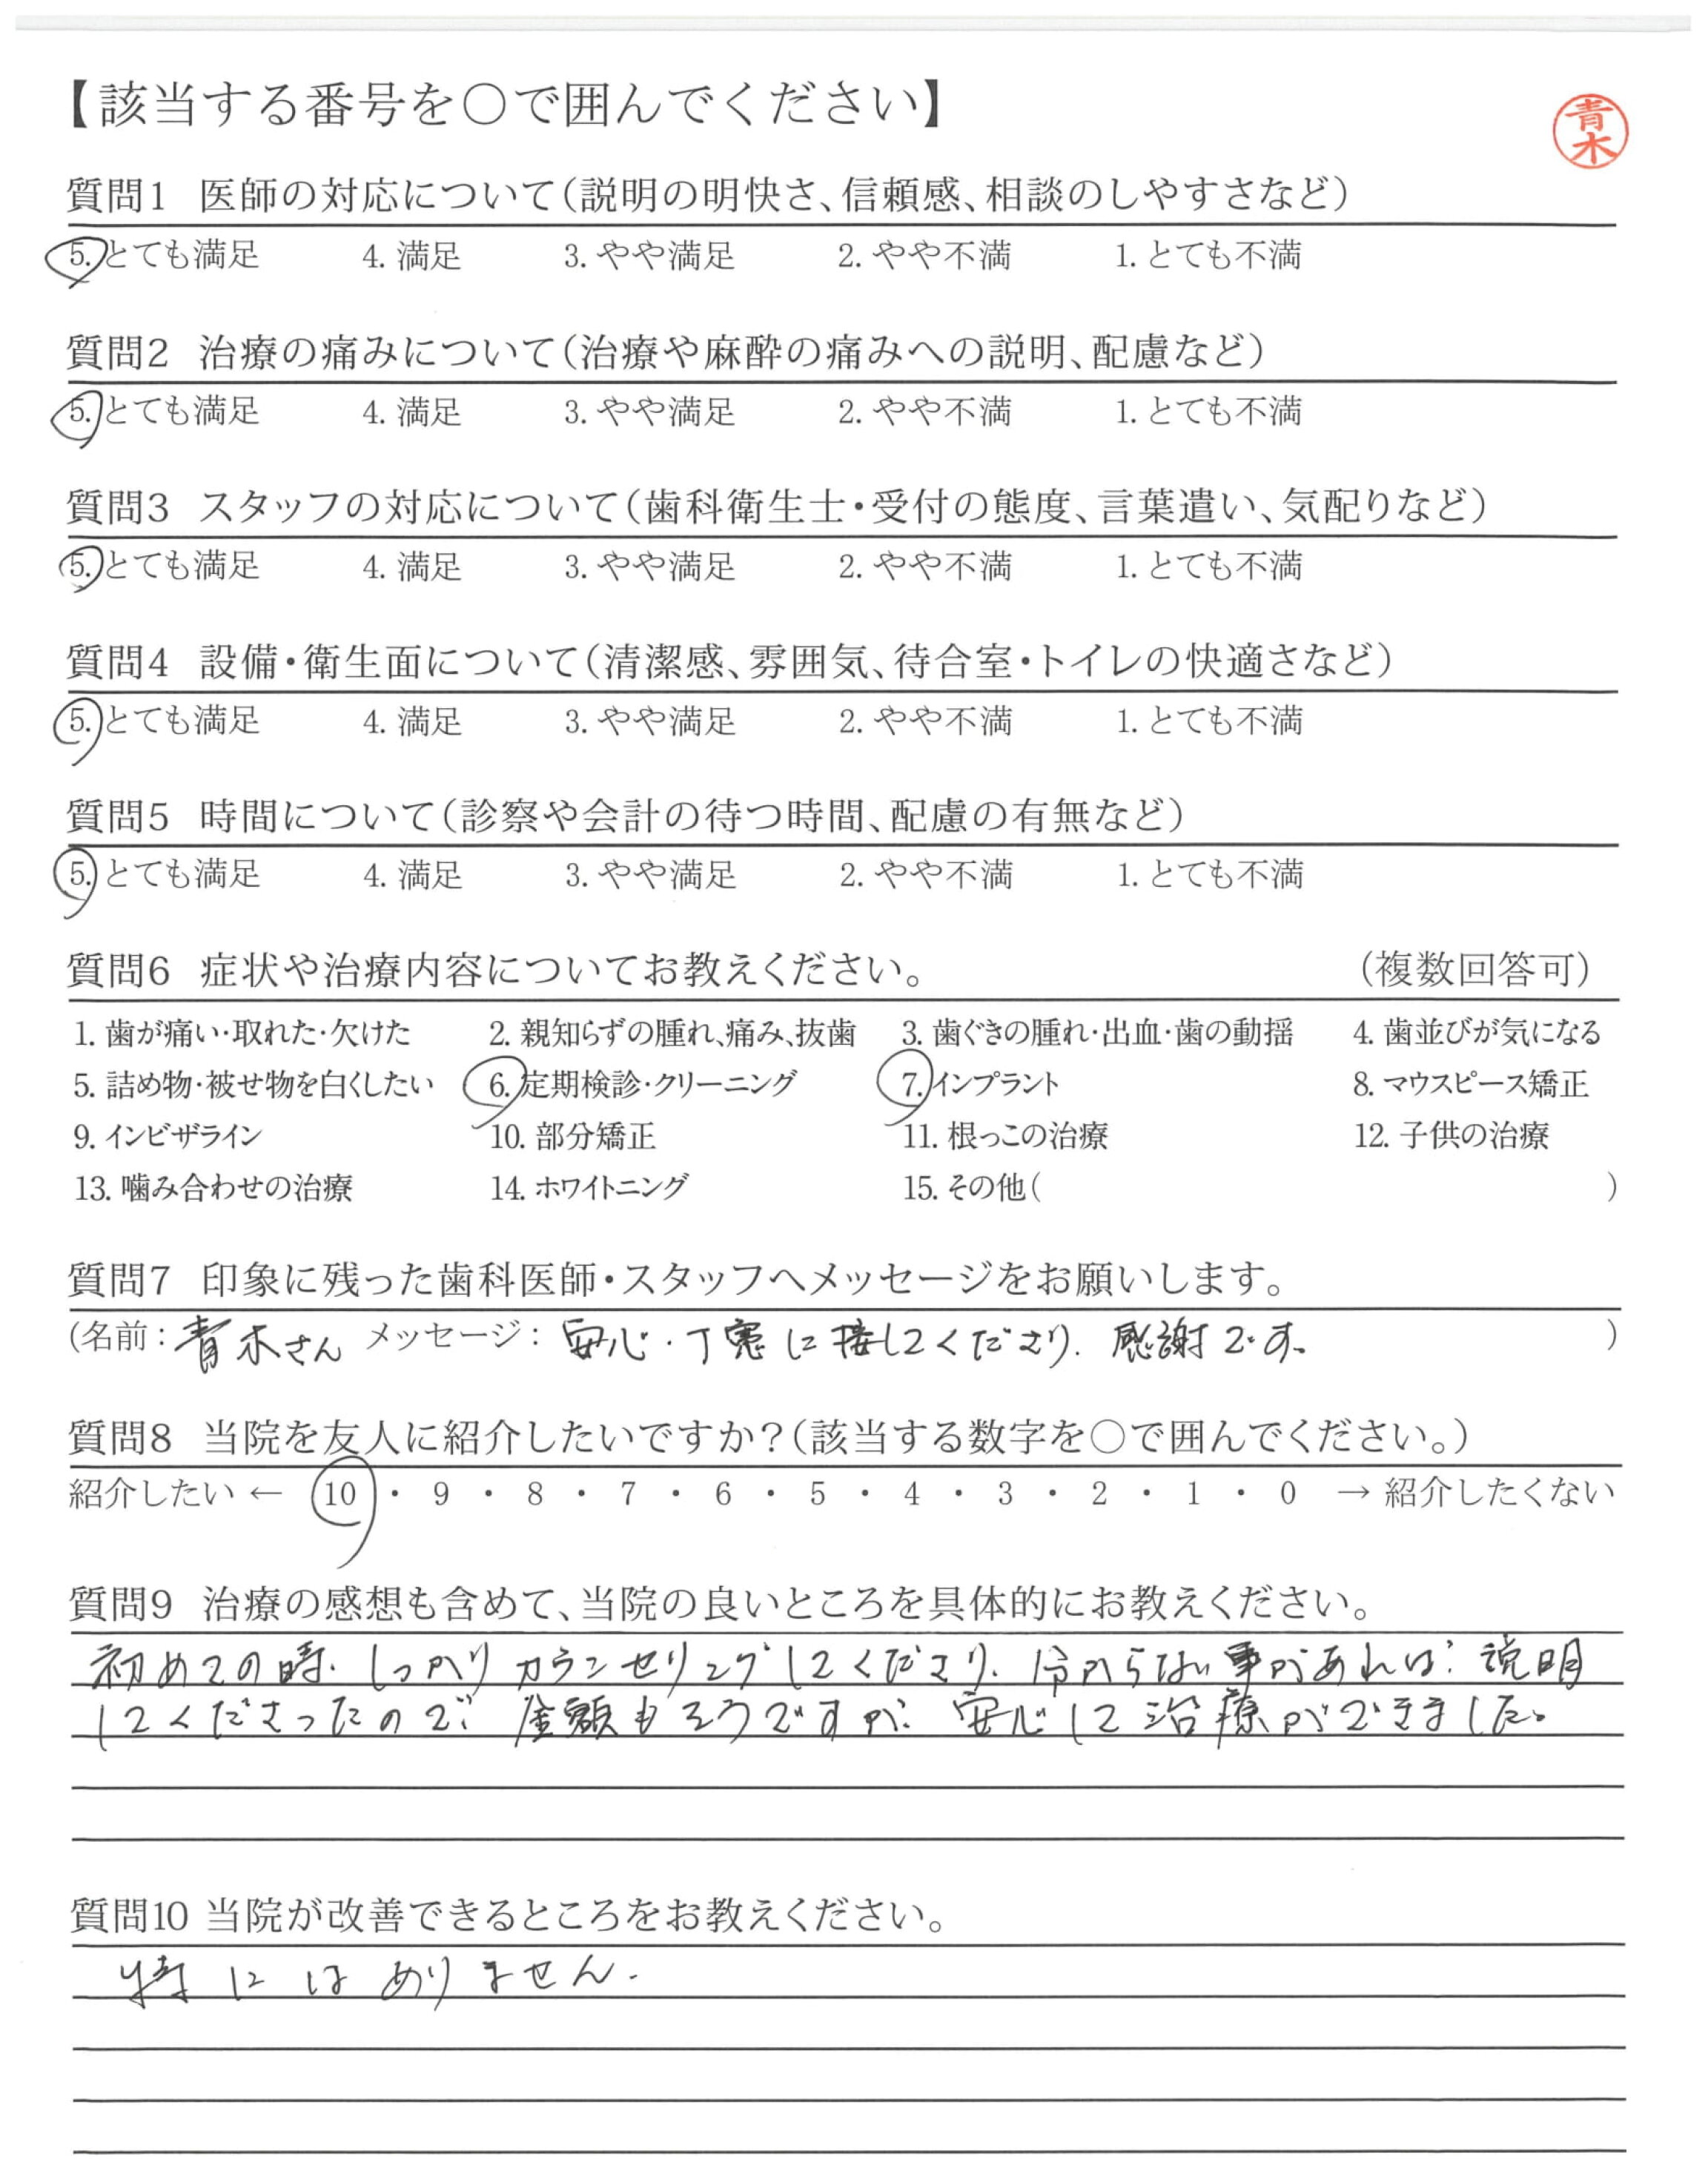 【該当する番号を○で囲んでください】
青木
質問1 医師の対応について(説明の明快さ、信頼感、相談のしやすさなど)
5. とても満足 4. 満足 3. やや満足 2. やや不満 1. とても不満
質問2 治療の痛みについて(治療や麻酔の痛みへの説明、配慮など)
5. とても満足 4. 満足 3. やや満足 2. やや不満 1. とても不満
質問3 スタッフの対応について(歯科衛生士・受付の態度、言葉遣い、気配りなど)
5. とても満足 4. 満足 3. やや満足 2. やや不満 1. とても不満
質問4 設備・衛生面について(清潔感、雰囲気、待合室・トイレの快適さなど)
5. とても満足 4. 満足 3. やや満足 2. やや不満 1. とても不満
質問5 時間について(診察や会計の待つ時間、配慮の有無など)
5. とても満足 4. 満足 3. やや満足 2. やや不満 1. とても不満
質問6 症状や治療内容についてお教えください。 (複数回答可)
1. 歯が痛い・取れた・欠けた 2. 親知らずの腫れ、痛み、抜歯 3. 歯ぐきの腫れ・出血・歯の動揺 4. 歯並びが気になる
5. 詰め物・被せ物を白くしたい 6. 定期検診・クリーニング 7. インプラント 8. マウスピース矯正
9. インビザライン 10. 部分矯正 11. 根っこの治療 12. 子供の治療
13. 噛み合わせの治療 14. ホワイトニング 15. その他( )
質問7 印象に残った歯科医師・スタッフへメッセージをお願いします。
(名前：青木さん メッセージ：安心・丁寧に接してくださり、感謝です。)
質問8 当院を友人に紹介したいですか？(該当する数字を○で囲んでください。)
紹介したい ← 10 ・ 9 ・ 8 ・ 7 ・ 6 ・ 5 ・ 4 ・ 3 ・ 2 ・ 1 ・ 0 → 紹介したくない
質問9 治療の感想も含めて、当院の良いところを具体的にお教えください。
初めての時、しっかりカウンセリングしてくださり、分からない事があれば、説明
してくださったので、金額もそうですが、安心して治療ができました。
質問10 当院が改善できるところをお教えください。
特にはありません。